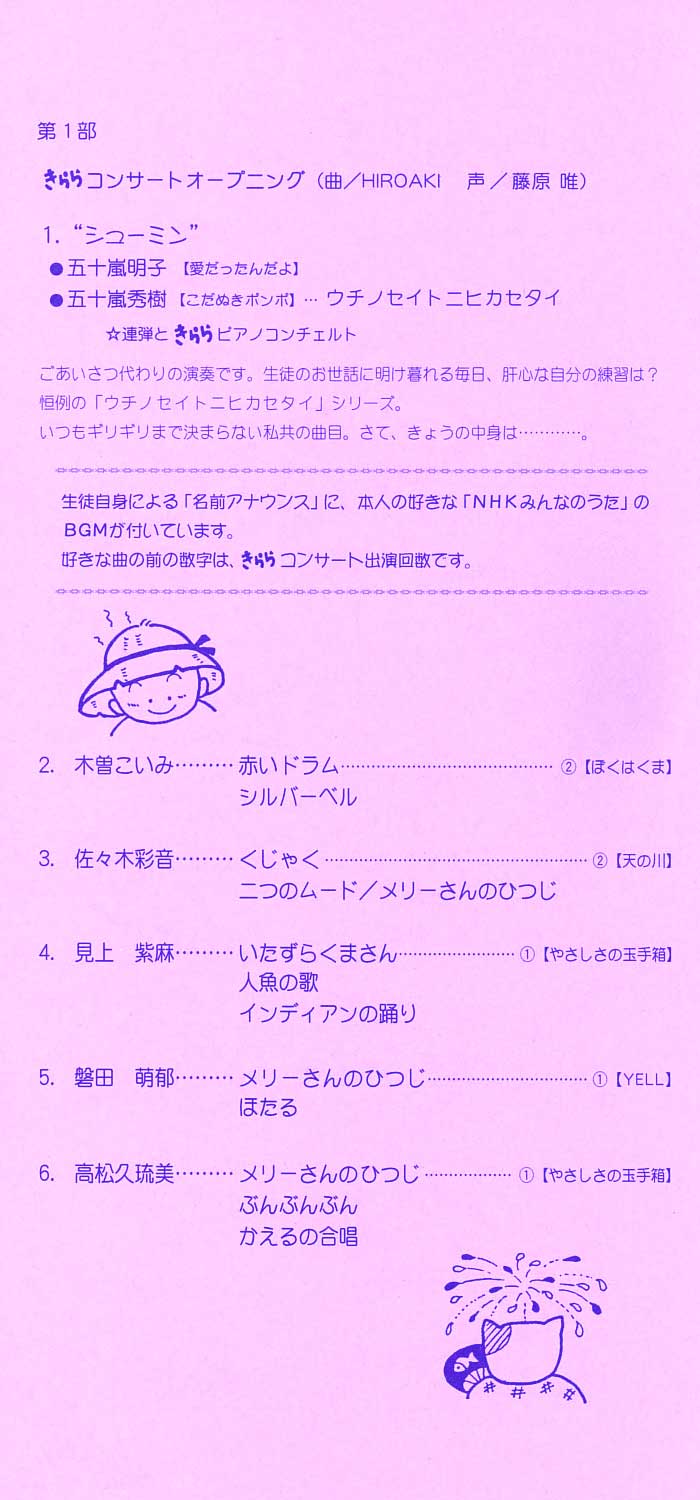 第１部
きららコンサートオープニング（曲／HIROAKI　声／藤原 唯）
1. “シューミン”
●五十嵐明子 【愛だったんだよ】
●五十嵐秀樹 【こだぬきポンポ】… ウチノセイトニヒカセタイ
☆連弾と きらら ピアノコンチェルト
ごあいさつ代わりの演奏です。生徒のお世話に明け暮れる毎日、肝心な自分の練習は？
恒例の「ウチノセイトニヒカセタイ」シリーズ。
いつもギリギリまで決まらない私共の曲目。さて、きょうの中身は…………。
生徒自身による「名前アナウンス」に、本人の好きな「NHKみんなのうた」の
BGMが付いています。
好きな曲の前の数字は、きらら コンサート出演回数です。
2. 木曽こいみ………赤いドラム……………………………………②【ぼくはくま】
シルバーベル
3. 佐々木彩音………くじゃく……………………………………………②【天の川】
二つのムード／メリーさんのひつじ
4. 見上　紫麻………いたずらくまさん……………………①【やさしさの玉手箱】
人魚の歌
インディアンの踊り
5. 磐田　萌郁………メリーさんのひつじ……………………………①【YELL】
ほたる
6. 高松久琉美………メリーさんのひつじ………………①【やさしさの玉手箱】
ぶんぶんぶん
かえるの合唱